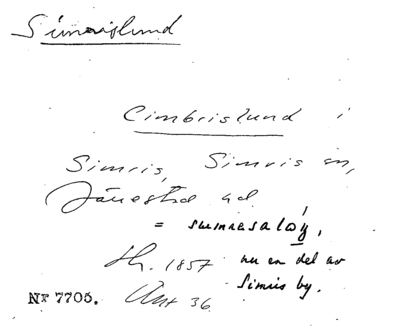 Simrislund
Cimbrislund i
Simris, Simris sn,
Järrestad hd.
=
Hr. 1857 nu en del av
Simris by.
Nr 7705.